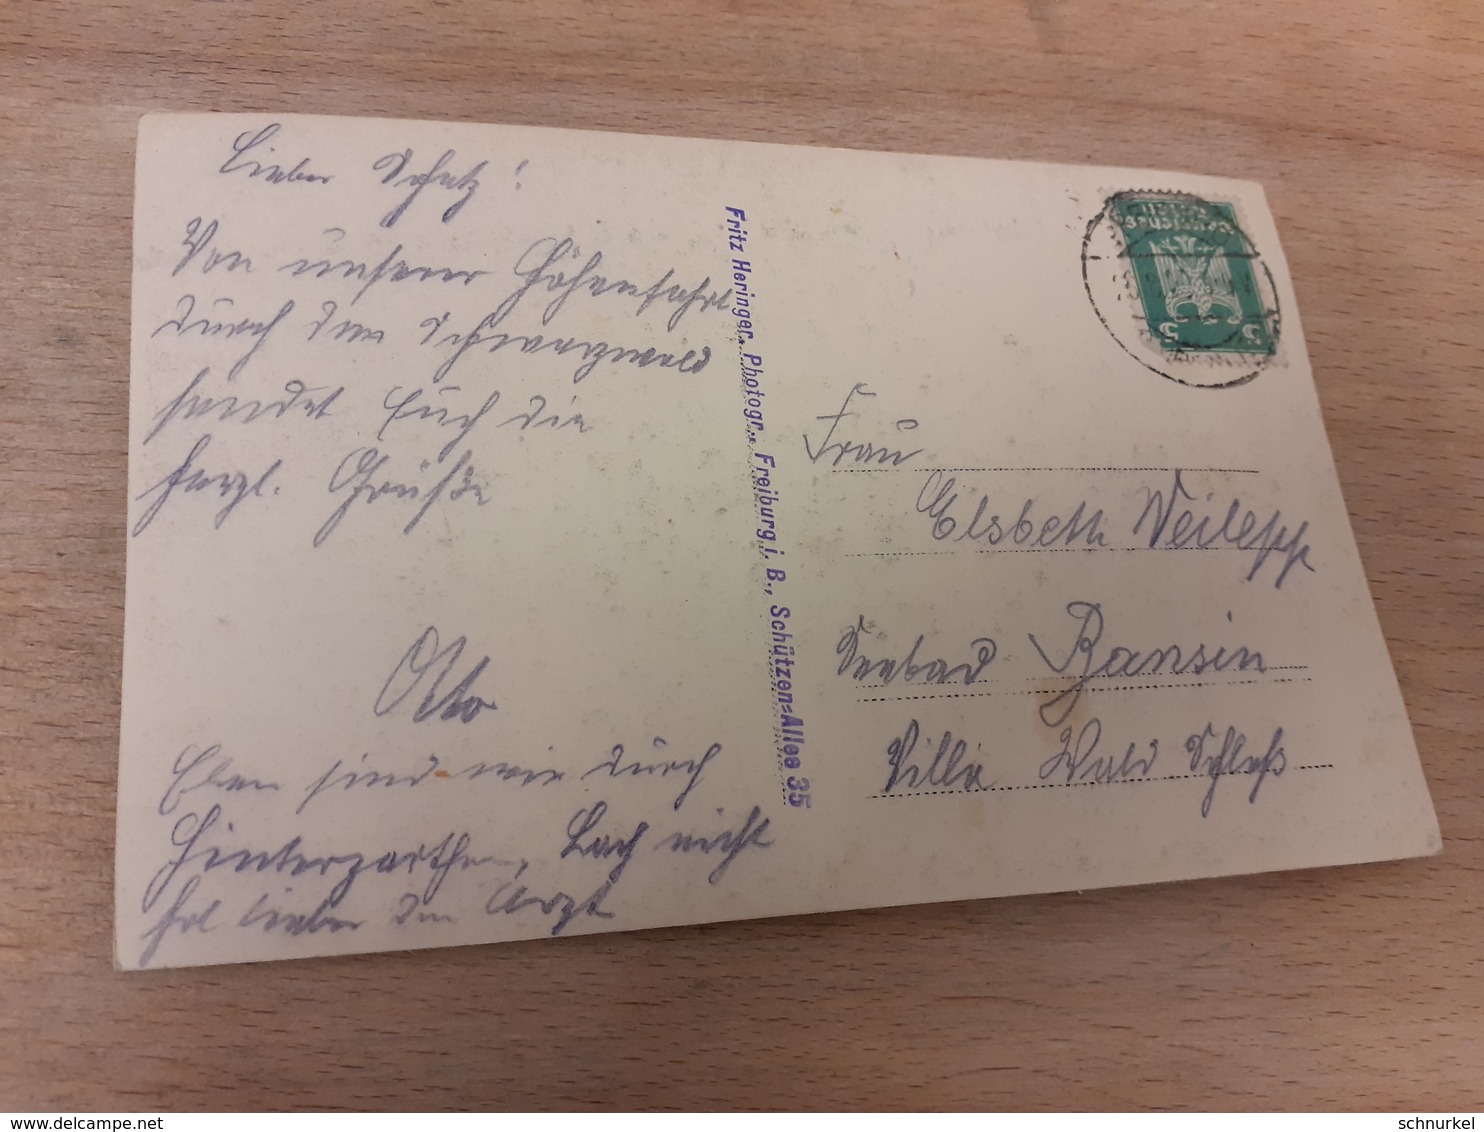 Lieber Schatz!
Von unserer Höhenfahrt
durch den Schwarzwald
sendet Euch die
herzl. Grüße
Otto
Eben sind wir durch
Hinterzarthen, nicht
lieber den Arzt
Fritz Heringer, Photogr., Freiburg i. B., Schützen=Allee 35
5 5
Frau
Elsbeth Weilepp
Seebad Bansin
Villa Wald Schloß
schnurkel